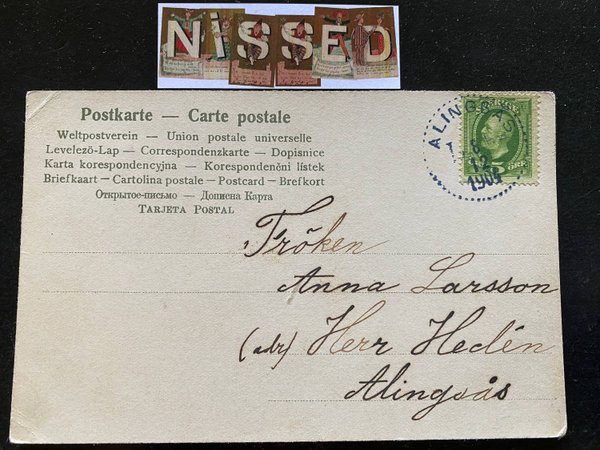 NISSED
Postkarte — Carte postale
Weltpostverein — Union postale universelle
Levelező-Lap — Correspondenzkarte — Dopisnice
Karta korespondencyjna — Korespondenční lístek
Briefkaart — Cartolina postale — Postcard — Brefkort
Открытое-письмо — Дописна Карта
TARJETA POSTAL
ALINGSÅS
8
12
1904
SVERIGE
ÖRE
Fröken
Anna Larsson
(adr) Herr Hedén
Alingsås